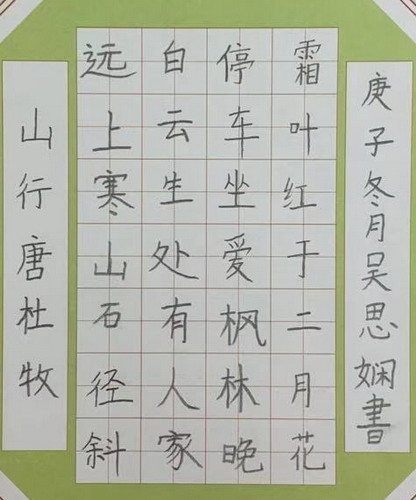 山行唐杜牧
远上寒山石径斜
白云生处有人家
停车坐爱枫林晚
霜叶红于二月花
庚子冬月吴思娴書